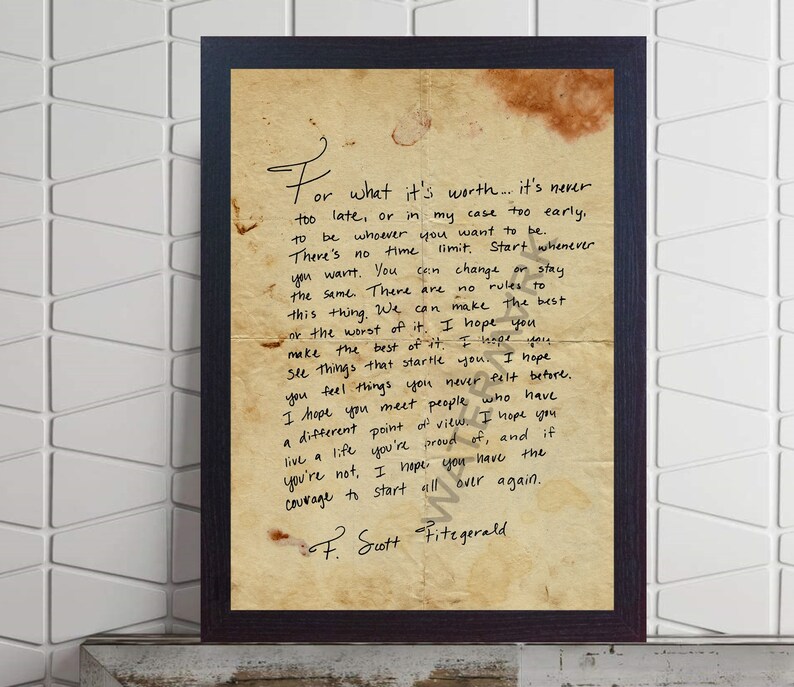 For what it's worth... it's never
too late, or in my case too early,
to be whoever you want to be.
There's no time limit. Start whenever
you want. You can change or stay
the same. There are no rules to
this thing. We can make the best
or the worst of it. I hope you
make the best of it. I hope you
see things that startle you. I hope
you feel things you never felt before.
I hope you meet people who have
a different point of view. I hope you
live a life you're proud of, and if
you're not, I hope you have the
courage to start all over again.
F. Scott Fitzgerald
WATERMARK